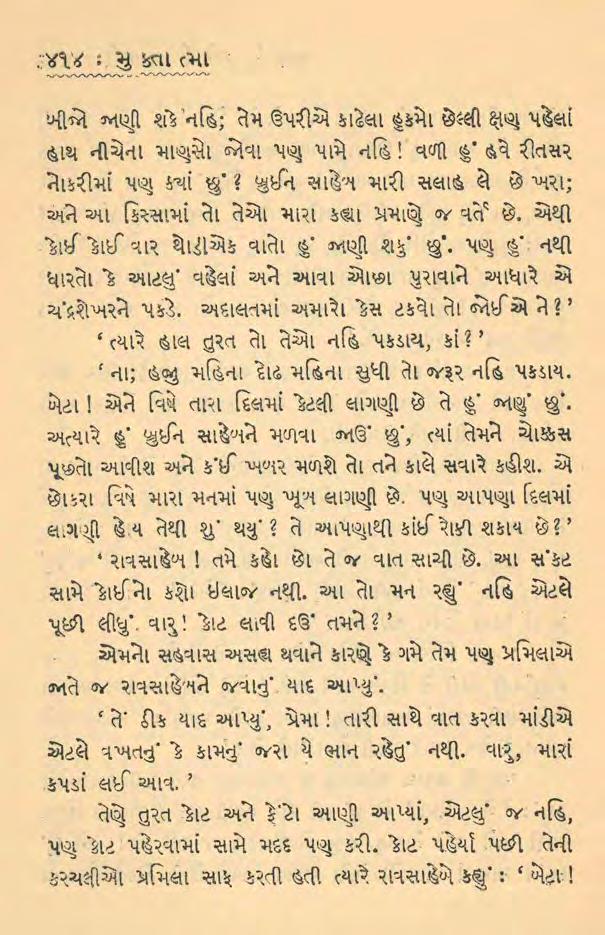 ૪૧૪ : મુ ક્તા ત્મા
બીજો જાણી શકે નહિ; તેમ ઉપરીએ કાઢેલા હુકમો છેલ્લી ક્ષણ પહેલાં
હાથ નીચેના માણસો જોવા પણ પામે નહિ! વળી હું હવે રીતસર
નોકરીમાં પણ ક્યાં છું? બ્રુઈન સાહેબ મારી સલાહ લે છે ખરા;
અને આ કિસ્સામાં તો તેઓ મારા કહ્યા પ્રમાણે જ વર્તે છે. એથી
કોઈ કોઈ વાર થોડીએક વાતો હું જાણી શકું છું. પણ હું નથી
ધારતો કે આટલું વહેલાં અને આવા ઓછા પુરાવાને આધારે એ
ચંદ્રશેખરને પકડે. અદાલતમાં અમારો કેસ ટકવો તો જોઈએ ને?’
‘ ત્યારે હાલ તુરત તો તેઓ નહિ પકડાય, કાં?’
‘ ના; હજી મહિના દોઢ મહિના સુધી તો જરૂર નહિ પકડાય.
બેટા! એને વિષે તારા દિલમાં કેટલી લાગણી છે તે હું જાણું છું.
અત્યારે હું બ્રુઈન સાહેબને મળવા જાઉં છું, ત્યાં તેમને ચોક્કસ
પૂછતો આવીશ અને કંઈ ખબર મળશે તો તને કાલે સવારે કહીશ. એ
છોકરા વિષે મારા મનમાં પણ ખૂબ લાગણી છે. પણ આપણા દિલમાં
લાગણી હોય તેથી શું થયું? તે આપણાથી કાંઈ રોકી શકાય છે?’
‘ રાવસાહેબ! તમે કહો છો તે જ વાત સાચી છે. આ સંકટ
સામે કોઈનો કશો ઇલાજ નથી. આ તો મન રહ્યું નહિ એટલે
પૂછી લીધું. વારુ! કોટ લાવી દઉં તમને?’
એમનો સહવાસ અસહ્ય થવાને કારણે કે ગમે તેમ પણ પ્રમિલાએ
જાતે જ રાવસાહેબને જવાનું યાદ આપ્યું.
‘ તેં ઠીક યાદ આપ્યું, પ્રેમા! તારી સાથે વાત કરવા માંડીએ
એટલે વખતનું કે કામનું જરા યે ભાન રહેતું નથી. વારુ, મારાં
કપડાં લઈ આવ. ’
તેણે તુરત કોટ અને ફેંટો આણી આપ્યાં, એટલું જ નહિ,
પણ કોટ પહેરવામાં સામે મદદ પણ કરી. કોટ પહેર્યા પછી તેની
કરચલીઓ પ્રમિલા સાફ કરતી હતી ત્યારે રાવસાહેબે કહ્યું : ‘ બેટા!